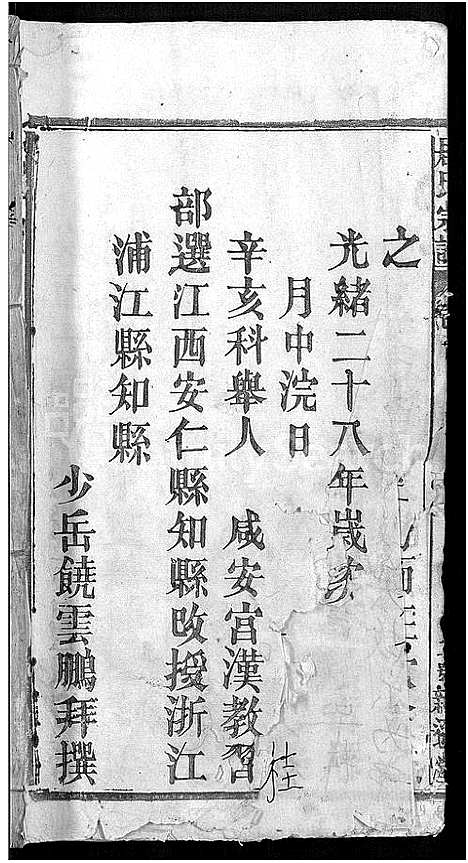 之
光緒二十八年歲
月中浣日
辛亥科舉人 咸安宮漢教習
部選江西安仁縣知縣改授浙江
浦江縣知縣
少岳饒雲鵬拜撰
桂